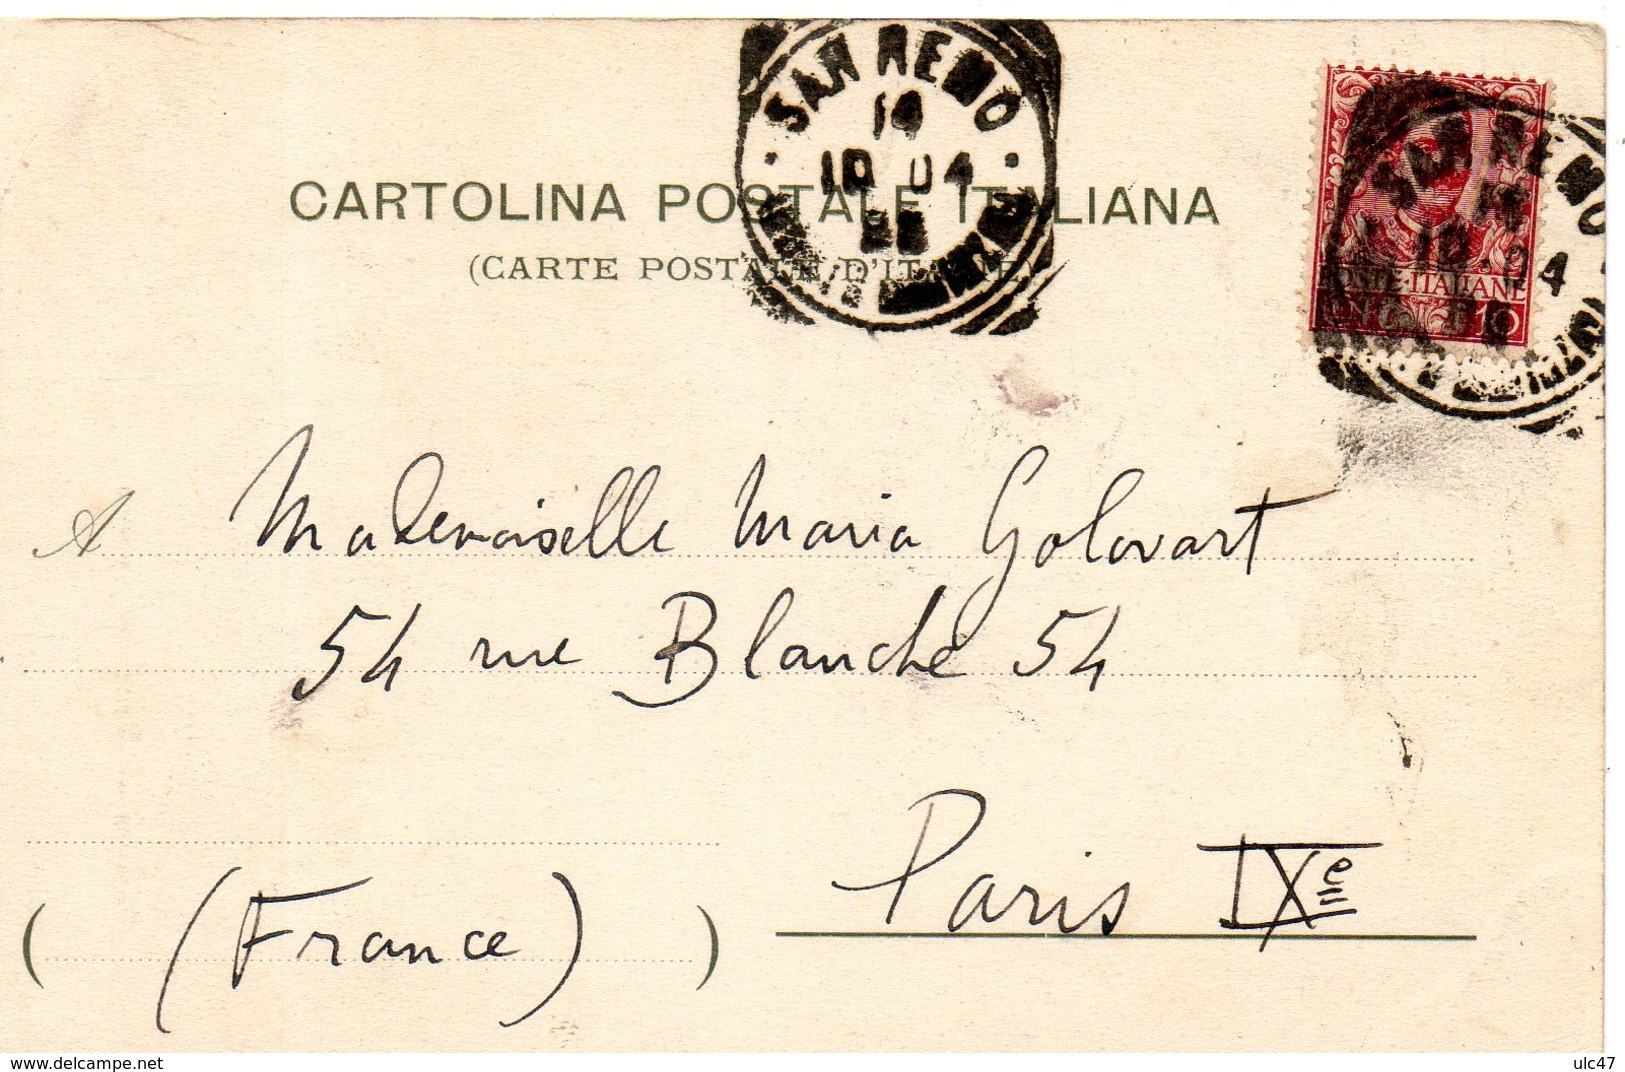 SAN REMO
14
10 04
CARTOLINA POSTALE ITALIANA
(CARTE POSTALE D'ITALIE)
SAN REMO
10 04
POSTE·ITALIANE
10
A Mademoiselle Maria Golovart
54 rue Blanche 54
Paris IXe
(France)
delcampe.net
ulc47